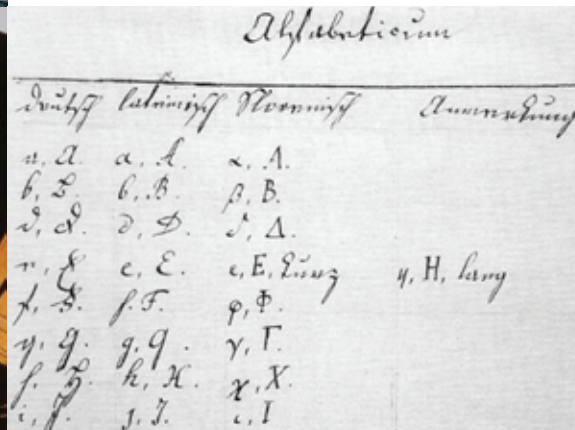 Alfabeticum
deutsch lateinisch Anmerkung
a, A. a, A. α, Α.
b, B. b, B. β, Β.
d, D. d, D. δ, Δ.
e, E. e, E. ε, Ε, kurz η, Η, lang
f, F. f. F. φ, Φ.
g, G. g, G. γ, Γ.
h, H. h, H. χ, Χ.
i, J. j, J. ι, Ι